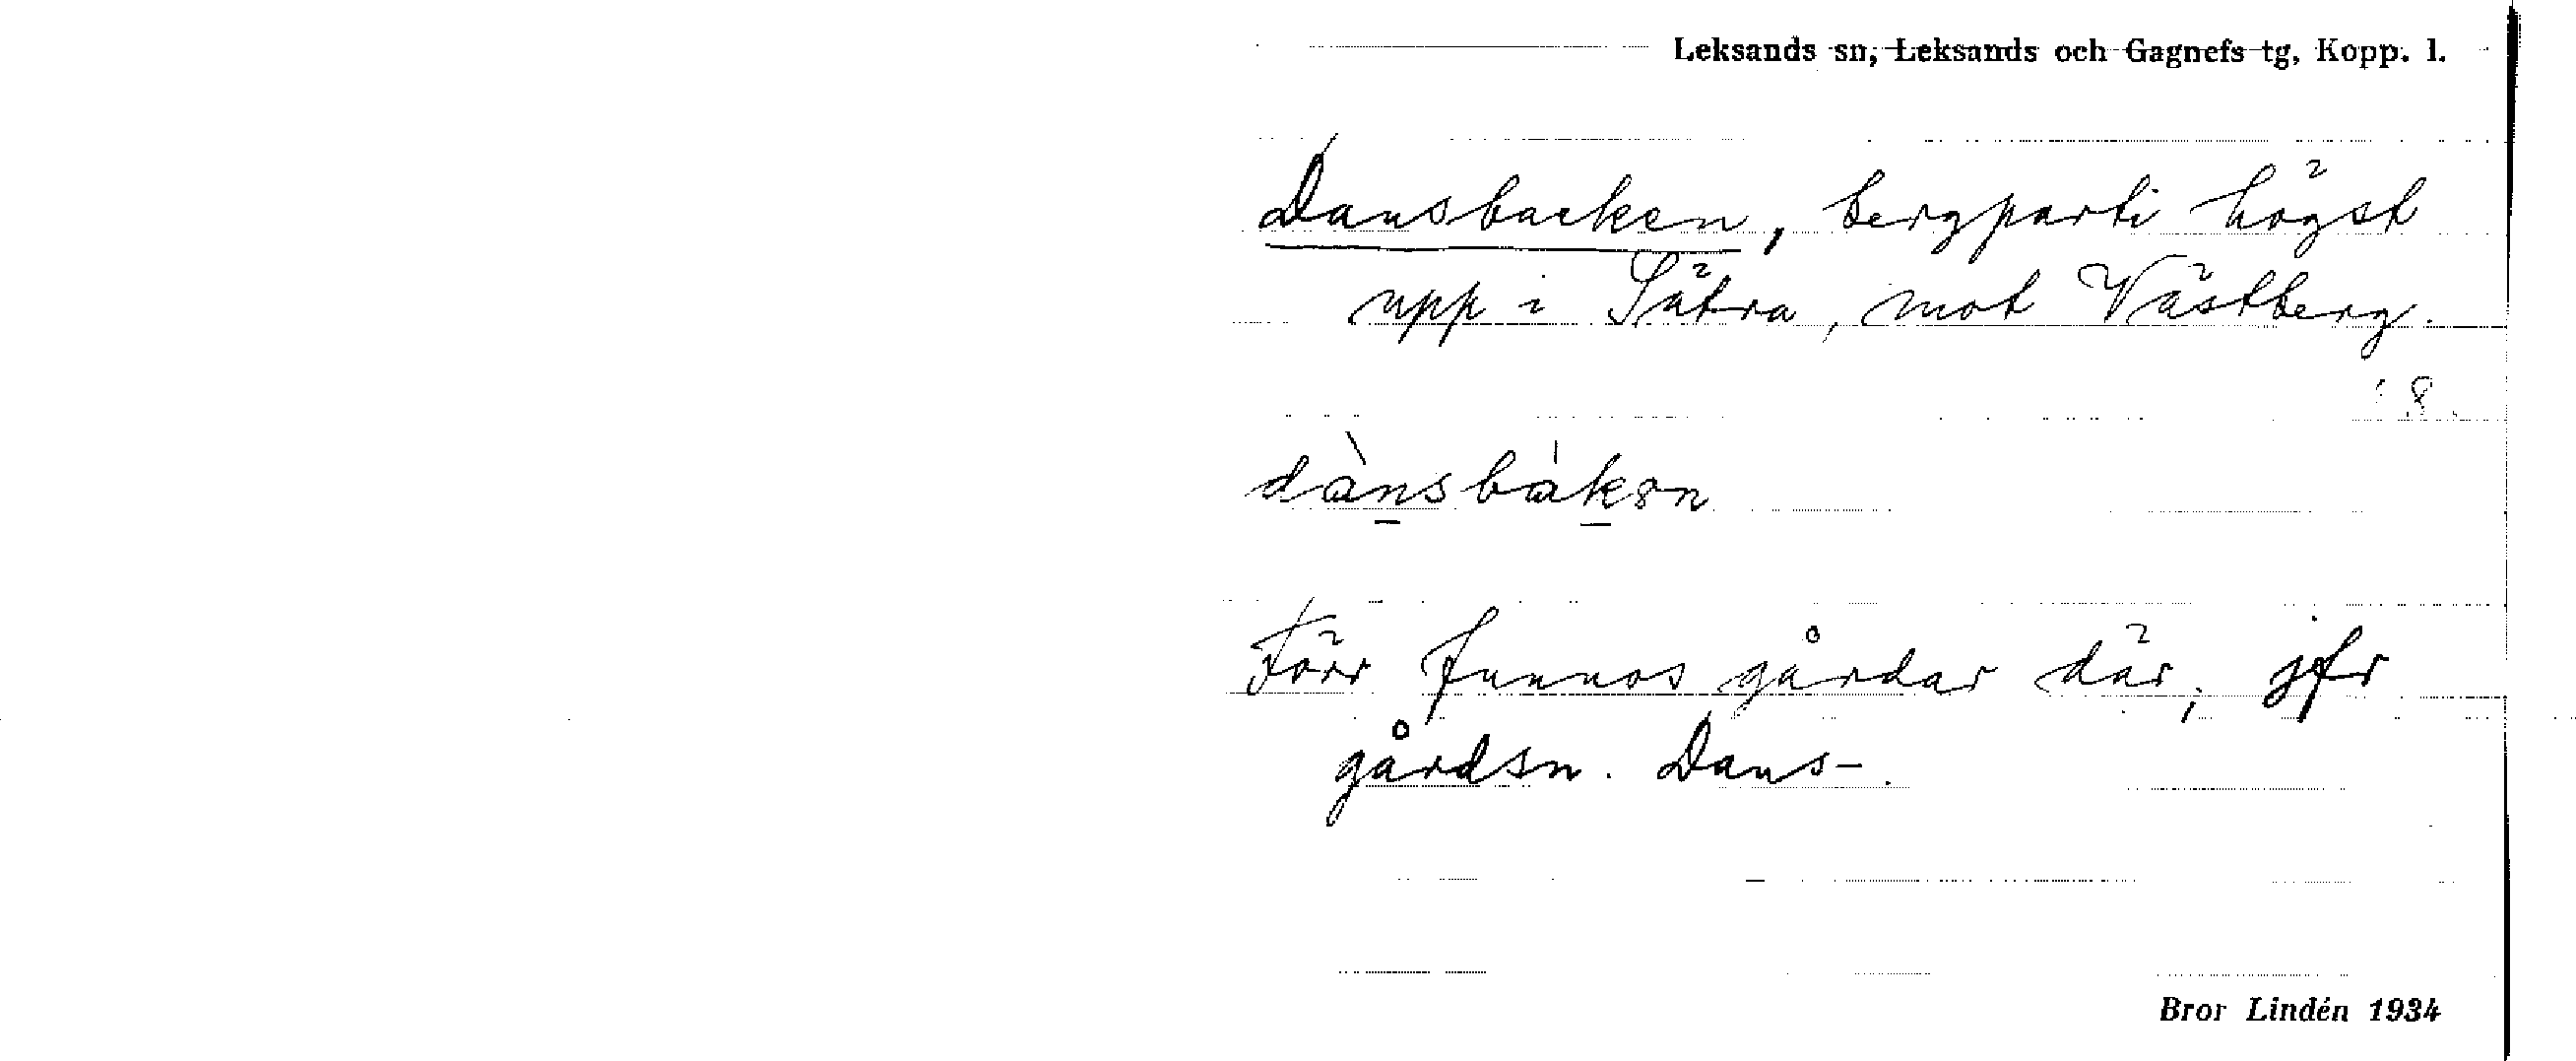 Leksands sn, Leksands och Gagnefs tg, Kopp. l.
Dansbacken, bergparti högst
upp i Sätra, mot Västberg.
8.
dànsbàkən
Förr funnos gårdar där, jfr
gårdsn. Dans-.
Bror Lindén 1934